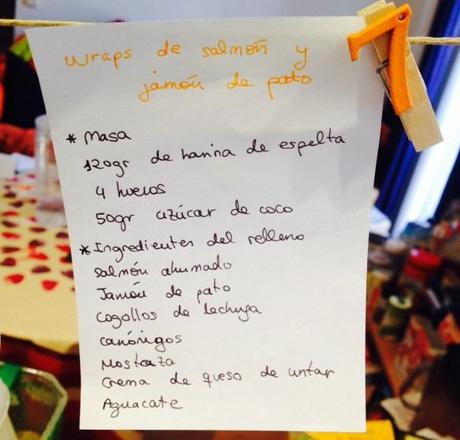 wraps de salmón y
jamón de pato
7
* Masa
120gr de harina de espelta
4 huevos
50gr azúcar de coco
* Ingredientes del relleno
salmón ahumado
Jamón de pato
Cogollos de lechuga
canónigos
Mostaza
Crema de queso de untar
Aguacate